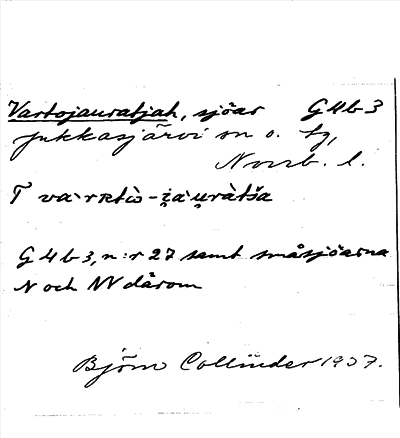 Vartojauratjah, sjöar G4b3
Jukkasjärvi sn o. tg,
Norrb. l.
T va·rʀtò-i̯a·u̯ràtša
G4b3, n:r 27 samt småsjöarna
N och NV därom
Björn Collinder 1937.